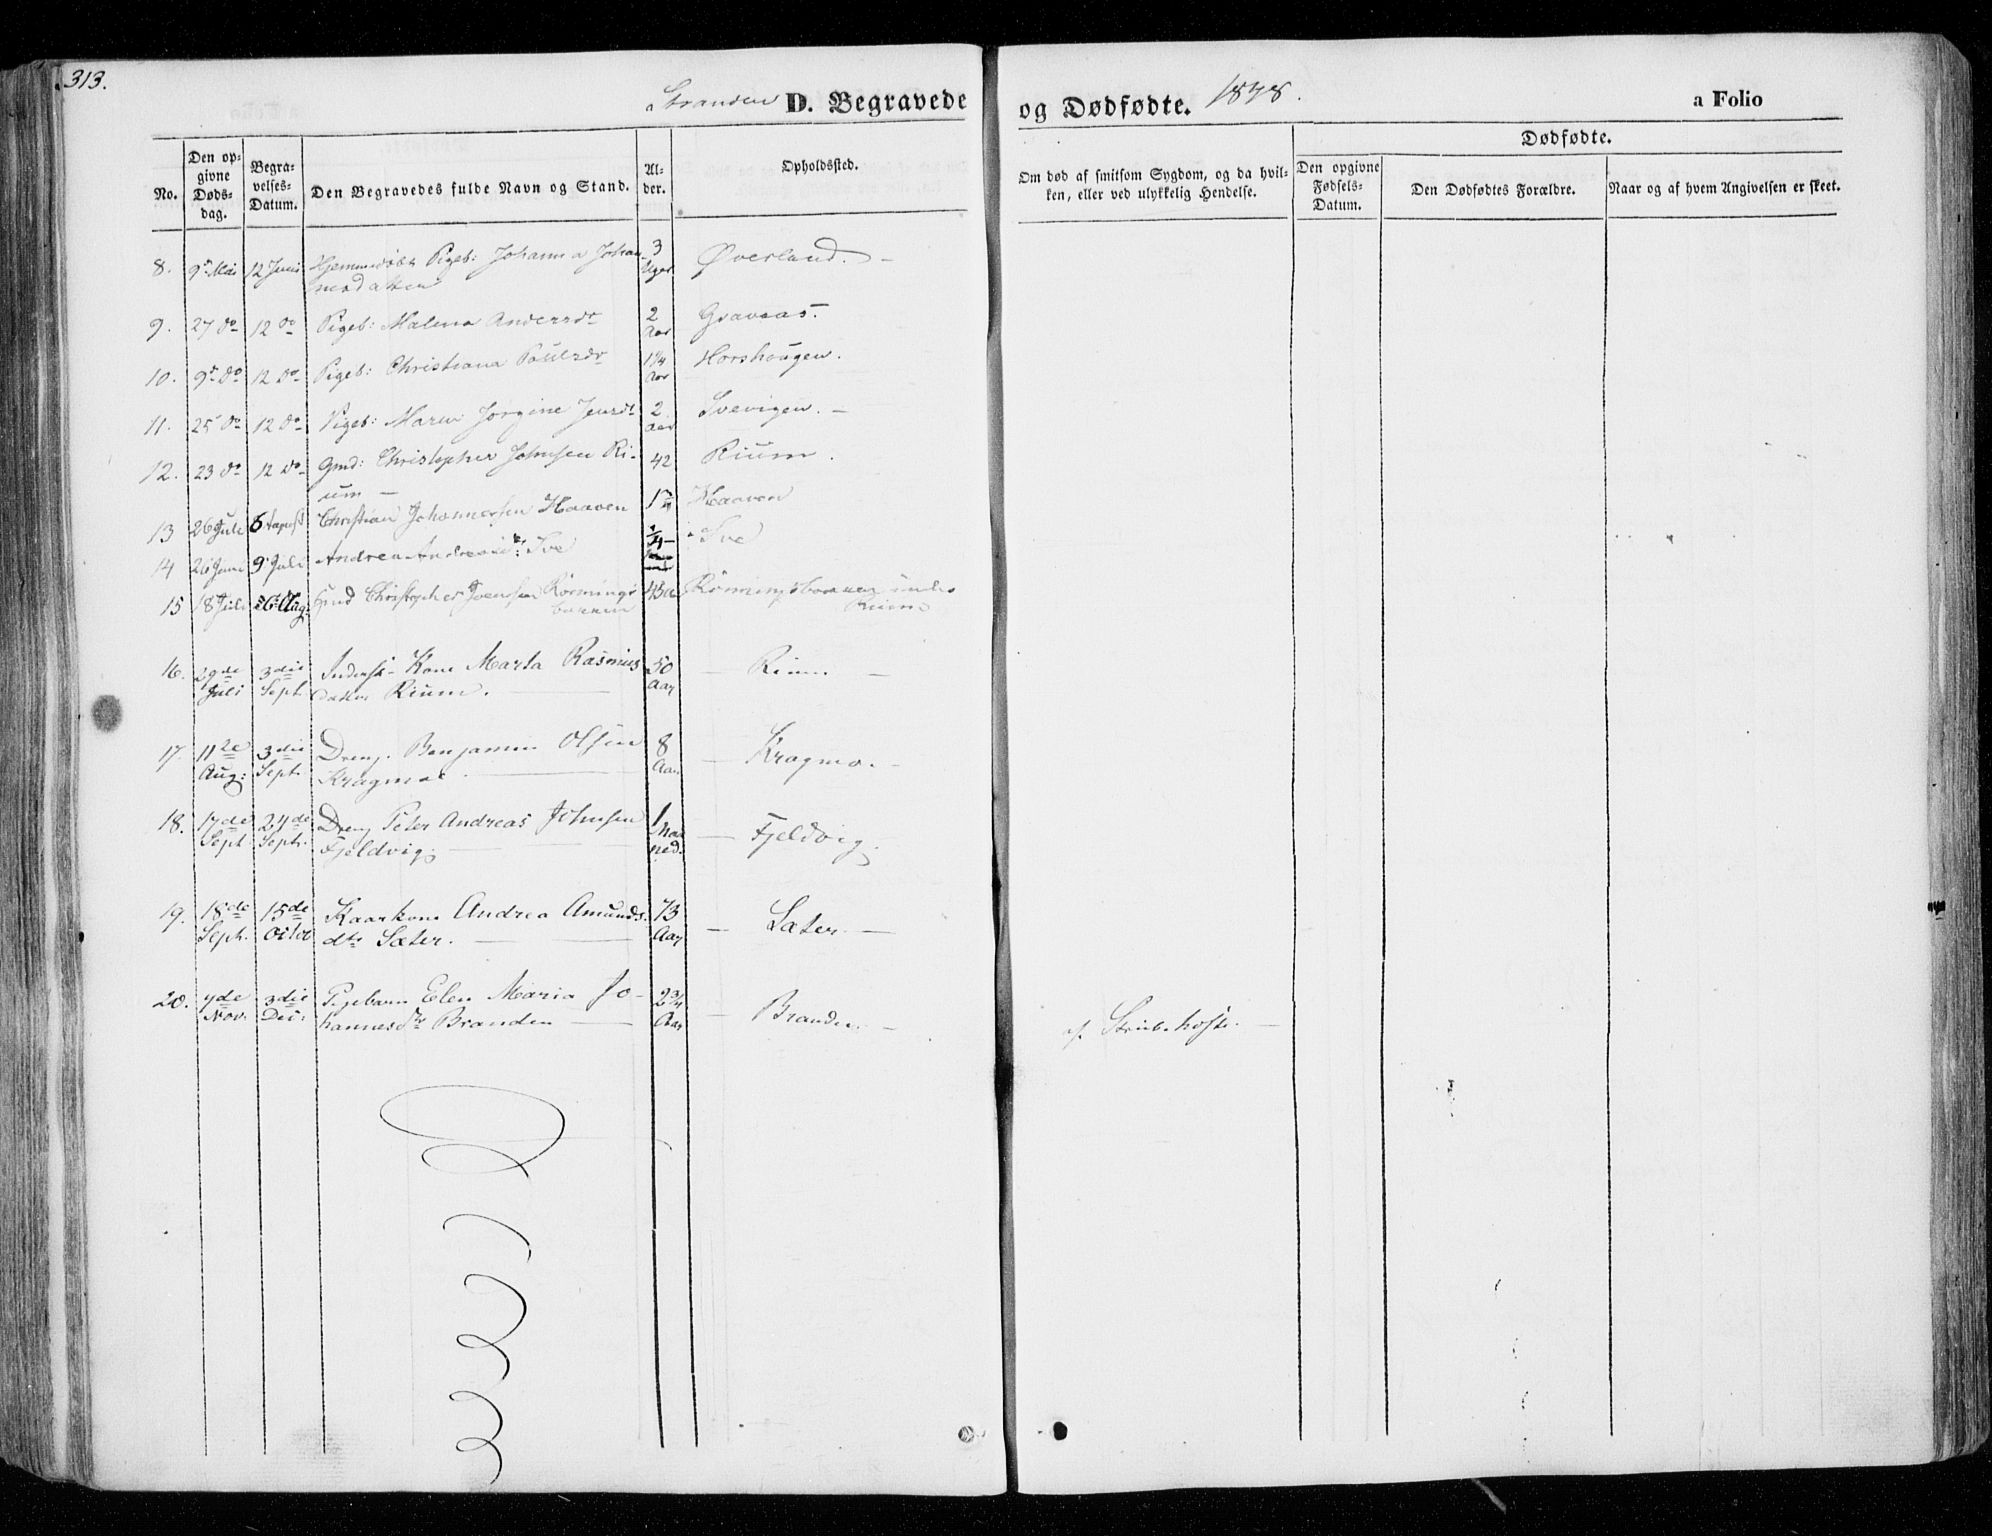 313.
Stranden D. Begravede og Dødfødte. 1848.
a Folio
No.
Den opgivne Dødsdag.
Begravelses-Datum.
Den Begravedes fulde Navn og Stand.
Alder.
Opholdssted.
Om død af smitsom Sygdom, og da hvilken, eller ved ulykkelig Hendelse.
Dødfødte.
Den opgivne Fødsels-Datum.
Den Dødfødtes Forældre.
Naar og af hvem Angivelsen er skeet.
8. 9de Mai 12 Juni Hjemmedøbt Pigeb: Johanna Johan- 3 Øverland. -
nesdatter Uger
9. 27 do 12 do Pigeb: Malena Andersdr 2 Graveas.
Aar
10. 9de do 12 do Pigeb: Christiana Poulsdr 1¼ Horshougen.
Aar
11. 25 do 12 do Pigeb: Maren Jørgine Jensdr 2 Svevigen. -
Aar
12. 23 do 12 do Gmd: Christopher Johnsen Ri- 42 Rium.
um -
13 26 Juli 6 August Christian Johannersen Haaven Haaven
14 26 Juni 9 Juli Andrea Sve Sve
15 18 Juli Aug. Gmd Christopher Iversen Rønnings- 43 a Rønningsbakken under
bakken Rium
16. 29de 3die Inderst. Kone Marta Rasmus 50 - Rium -
Juli Sept. datter Rium. Aar
17. 11te 3die Dreng. Benjamin Olsen 8 - Kragmo. -
Aug: Sept. Kragmoe. Aar
18. 17de 24de Dreng Peter Andreas Johnsen 1 - Fjeldvig.
Sept Septr. Fjeldvig. Maaned.
19. 18de 15de Kaarkone Andrea Amunds- 73 - Sæter. -
Sept. Octbr dtr Sæter. Aar
20. 7de 3die Pigebarn Elen Maria Jo- 2¾ - Branden. - af Strubehoste. -
Nov. Dec: hannesdtr Branden - Aar